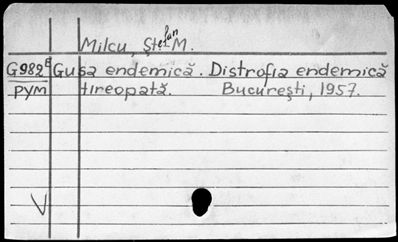 Milcu, Ștefan M.
G982E Gușa endemică. Distrofia endemică
PYM tireopată. București, 1957.
V